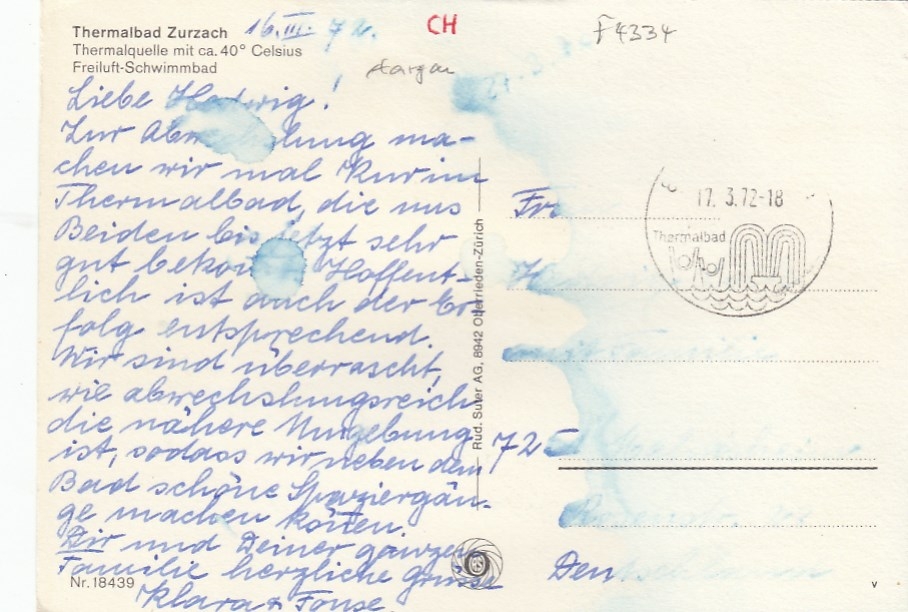 Thermalbad Zurzach 16.III. 72.
Thermalquelle mit ca. 40° Celsius
Freiluft-Schwimmbad
CH
F4334
Aargau
Liebe Hedwig!
Zur Abwechslung ma-
chen wir mal Kur im
Thermalbad, die uns
Beiden bis jetzt sehr
gut bekommt. Hoffent-
lich ist auch der Er-
folg entsprechend.
Wir sind überrascht,
wie abwechslungsreich
die nähere Umgebung
ist, sodass wir neben dem
Bad schöne Spaziergän-
ge machen können.
Dir und Deiner ganzen
Familie herzliche Grüsse
Klara & Fonse.
Nr. 18439
Rud. Suter AG, 8942 Oberrieden-Zürich
17. 3.72-18
Thermalbad
725
Deutschland
v